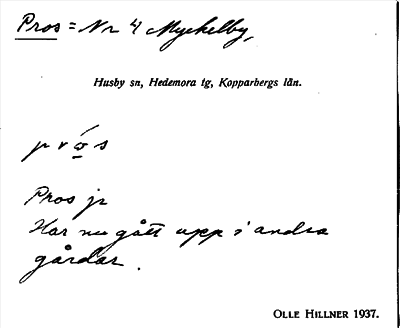 Pros = Nr 4 Myckelby,
Husby sn, Hedemora tg, Kopparbergs län.
prо̨́s
Pros jr
Har nu gått upp i andra
gårdar.
OLLE HILLNER 1937.